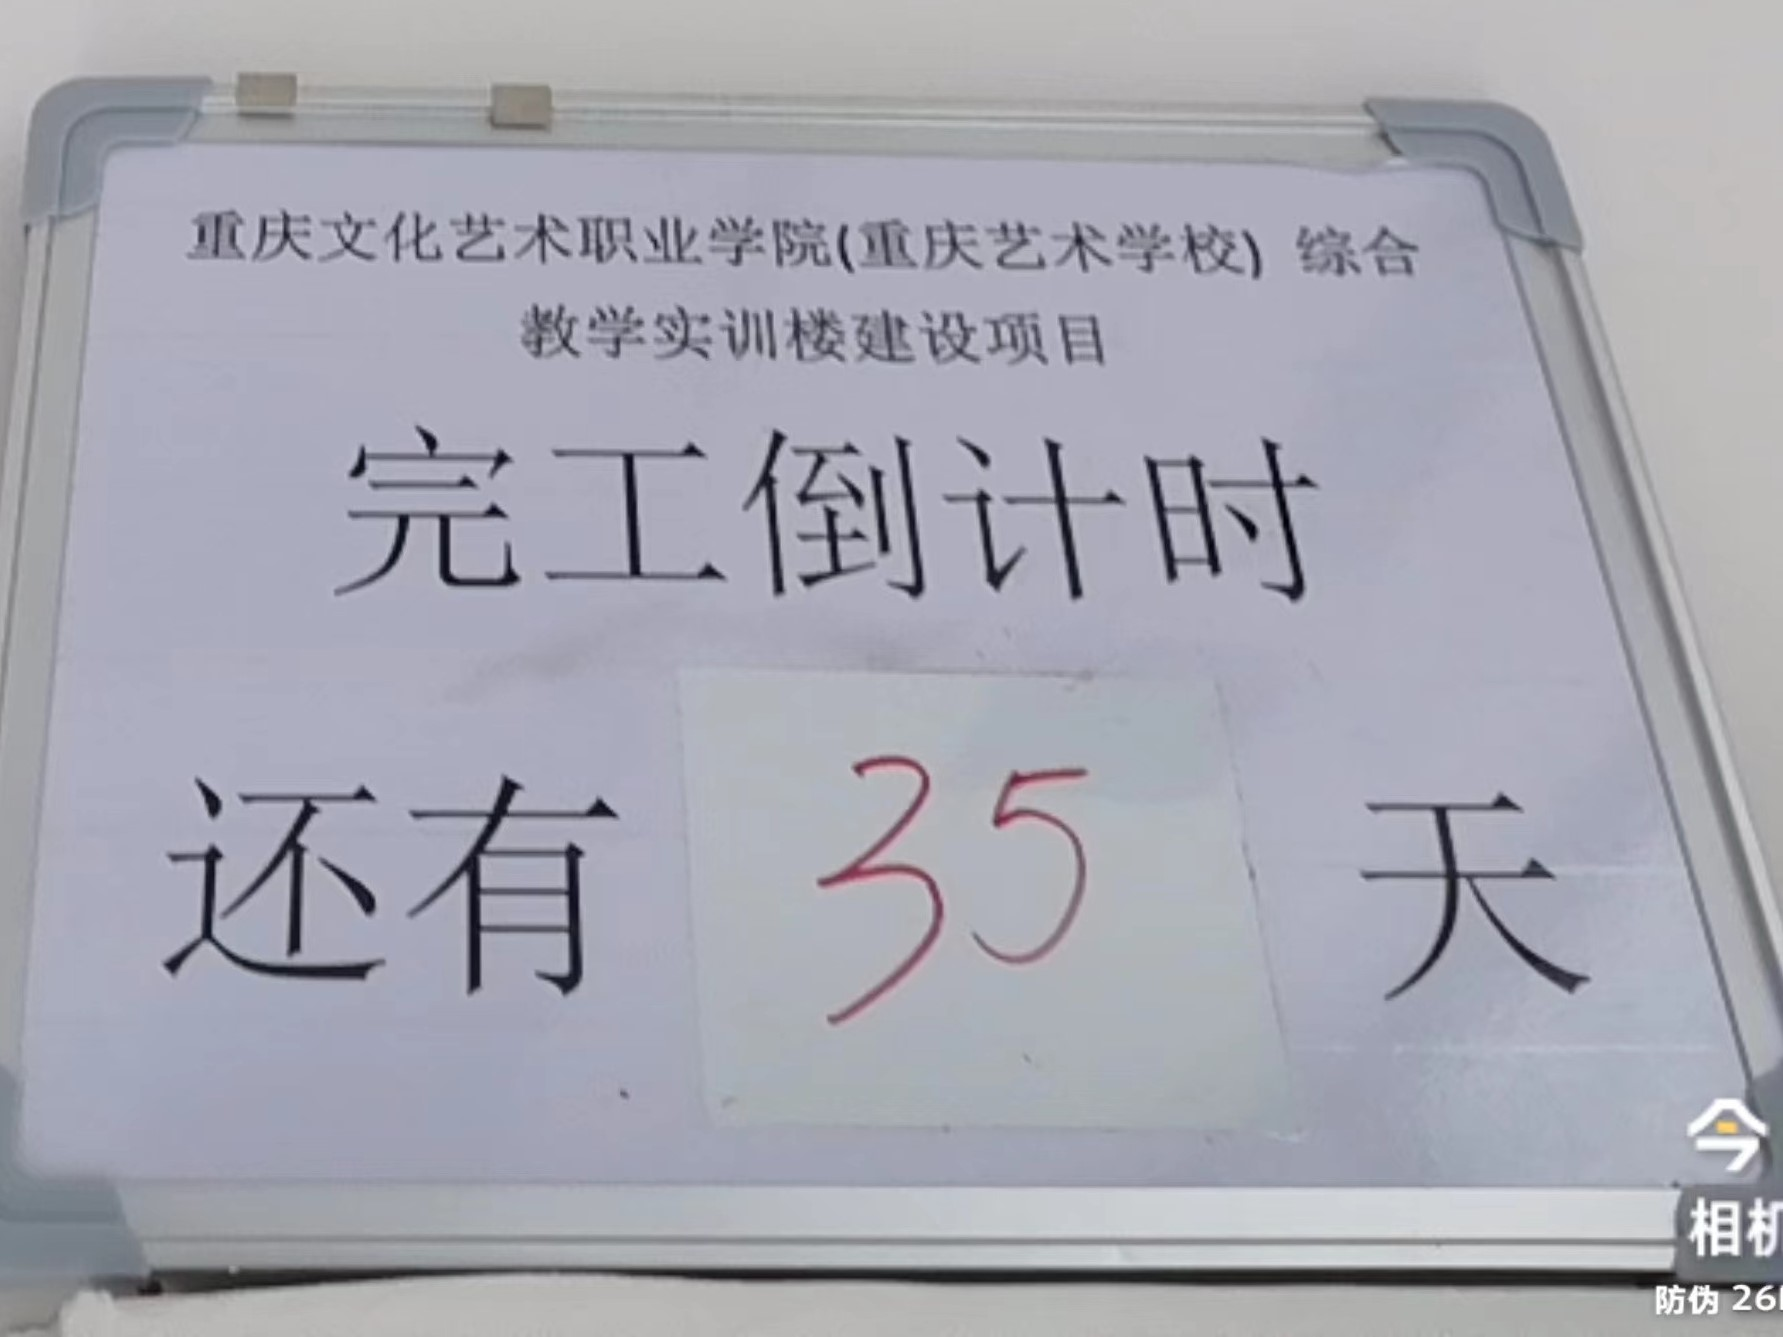 重庆文化艺术职业学院(重庆艺术学校) 综合
教学实训楼建设项目
完工倒计时
还有 35 天
今
相机
防伪 26